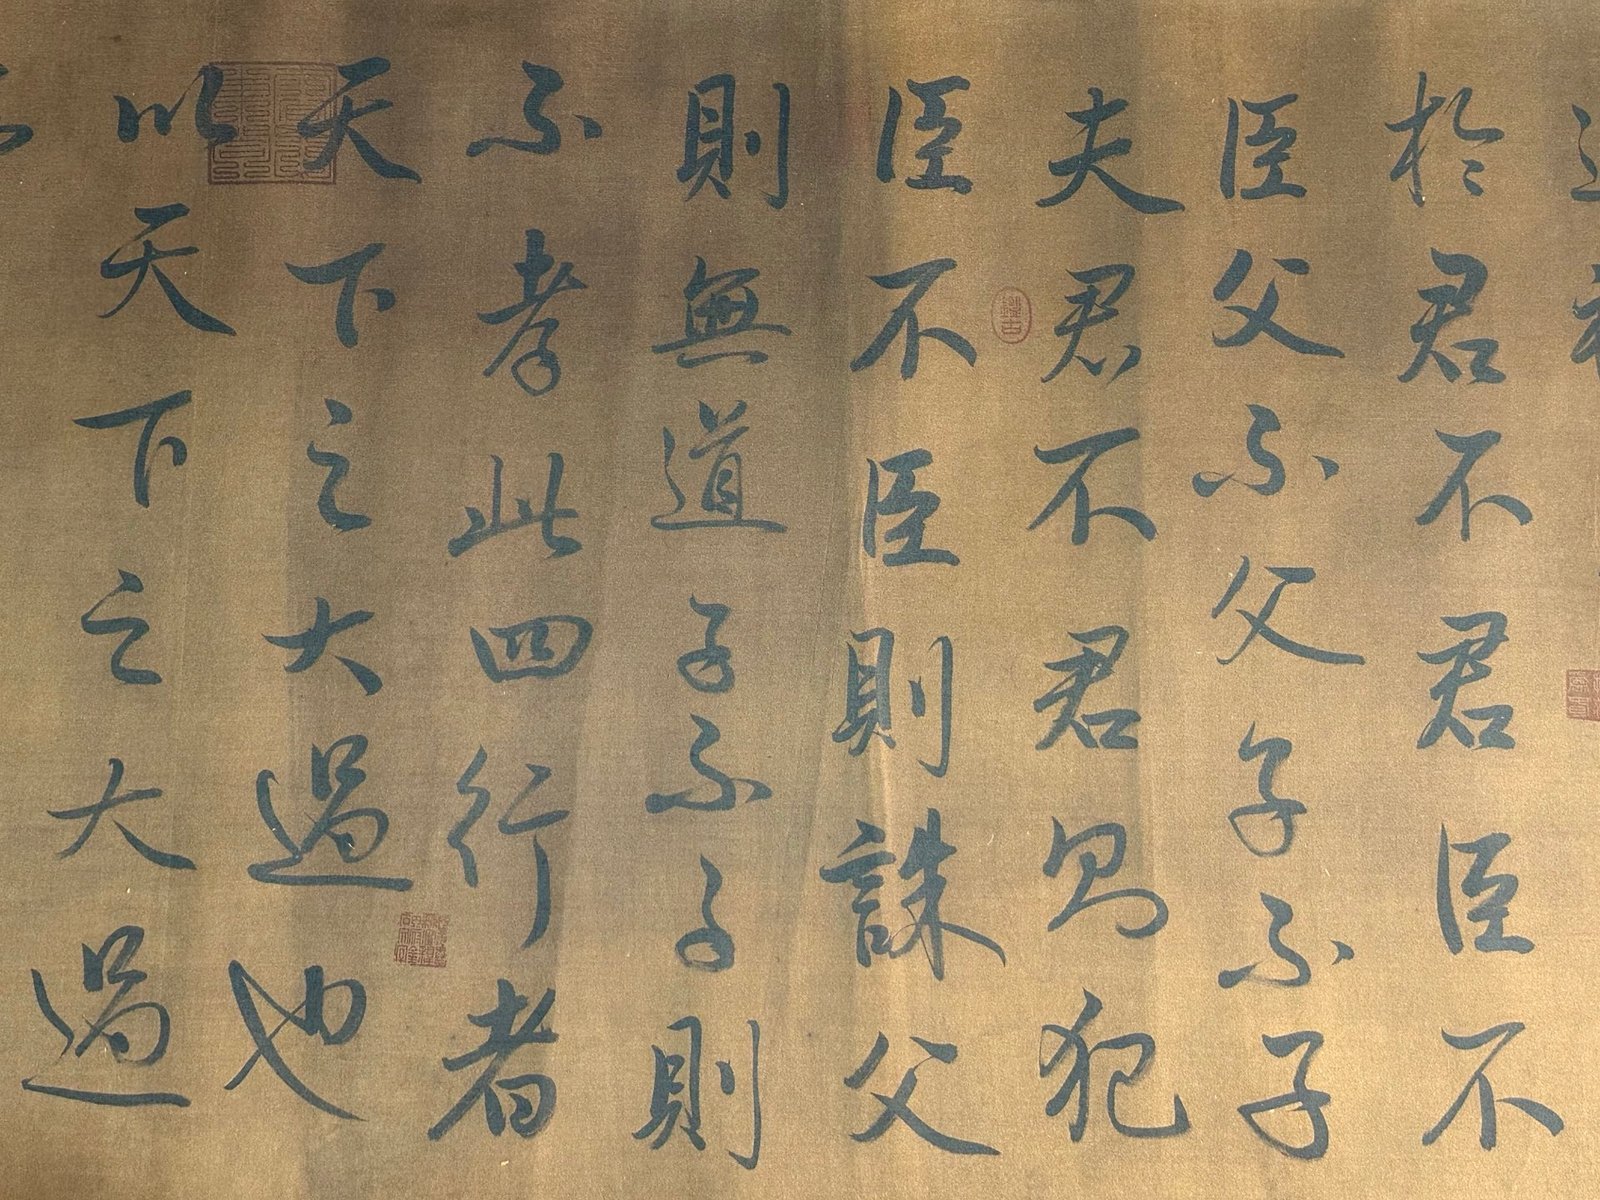 於君不君臣不
臣父不父子不子
夫君不君則犯
臣不臣則誅父
則無道子不子則
不孝此四行者
天下之大過也
以天下之大過